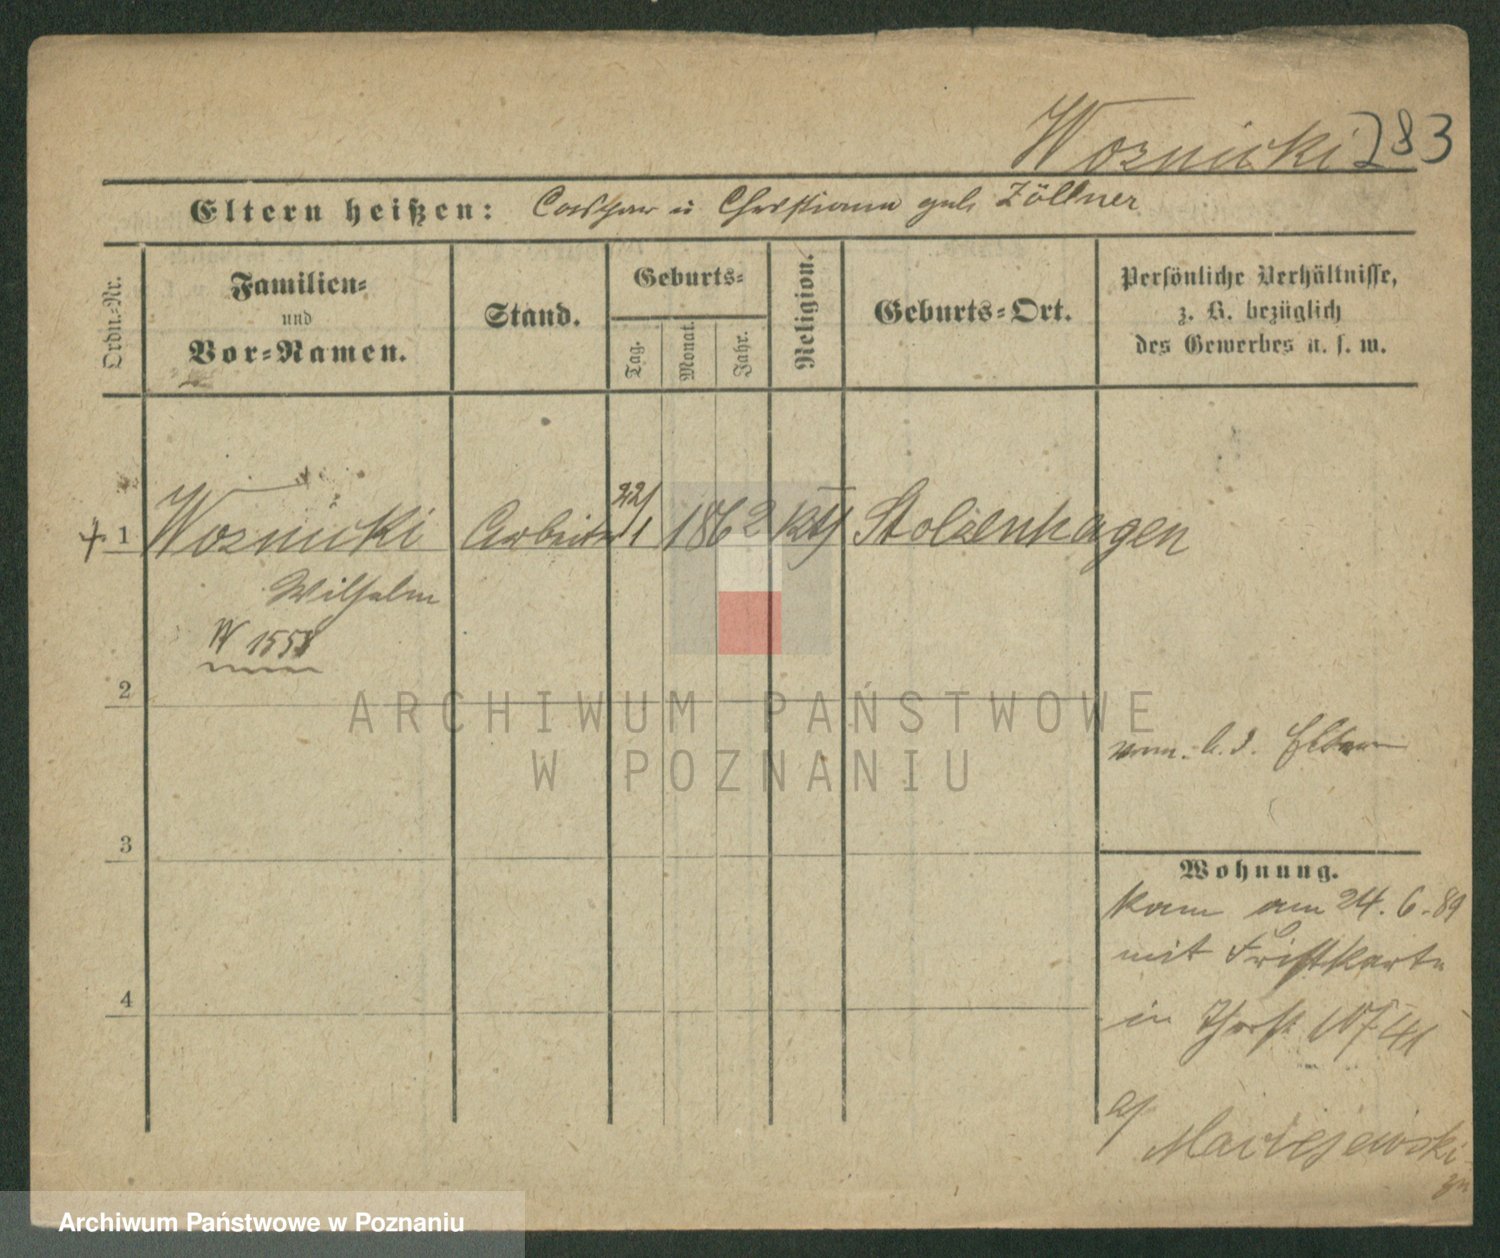 Woznicki 283
Eltern heißen: Caspar u Christiana geb. Zöllner
Ordn.-Nr.
Familien-
und
Vor-Namen.
Stand.
Geburts-
Tag.
Monat.
Jahr.
Religion.
Geburts-Ort.
Persönliche Verhältnisse,
z. B. bezüglich
des Gewerbes u. s. w.
1 Woznicki Arbeiter 22/1 1862 kth Stolzenhagen
Wilhelm
W 1558
2
vom. b. d. Eltern
3
Wohnung.
kam am 24.6.89
mit Fristkarte
in
4
a/ Maciejewski
ARCHIWUM PAŃSTWOWE
W POZNANIU
Archiwum Państwowe w Poznaniu